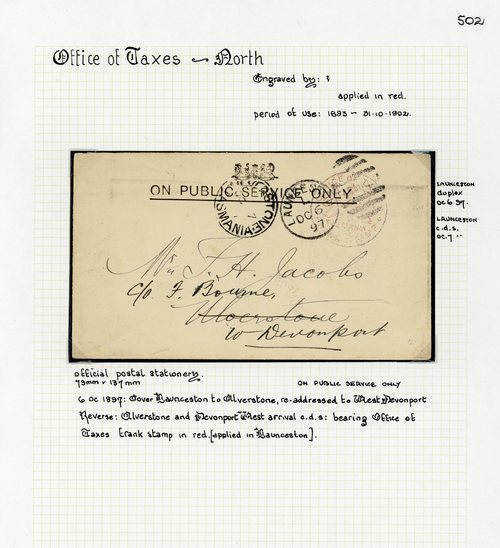 502
Office of Taxes ~ North
Engraved by: ?
applied in red.
period of use: 1893 - 31-10-1902.
ON PUBLIC SERVICE ONLY
ULVERSTONE
7
TASMANIA
LAUNCESTON
OC 6
97
Mr. T. H. Jacobs
C/o F. Bourne,
Ulverstone
W Devonport
LAUNCESTON
duplex
OC 6 97.
LAUNCESTON
c.d.s.
OC.7 ··
official postal stationery.
79mm x 137mm
ON PUBLIC SERVICE ONLY
6 OC 1897: Cover Launceston to Ulverstone, re-addressed to West Devonport
Reverse: Ulverstone and Devonport West arrival c.d.s: bearing Office of
Taxes frank stamp in red.[applied in Launceston].